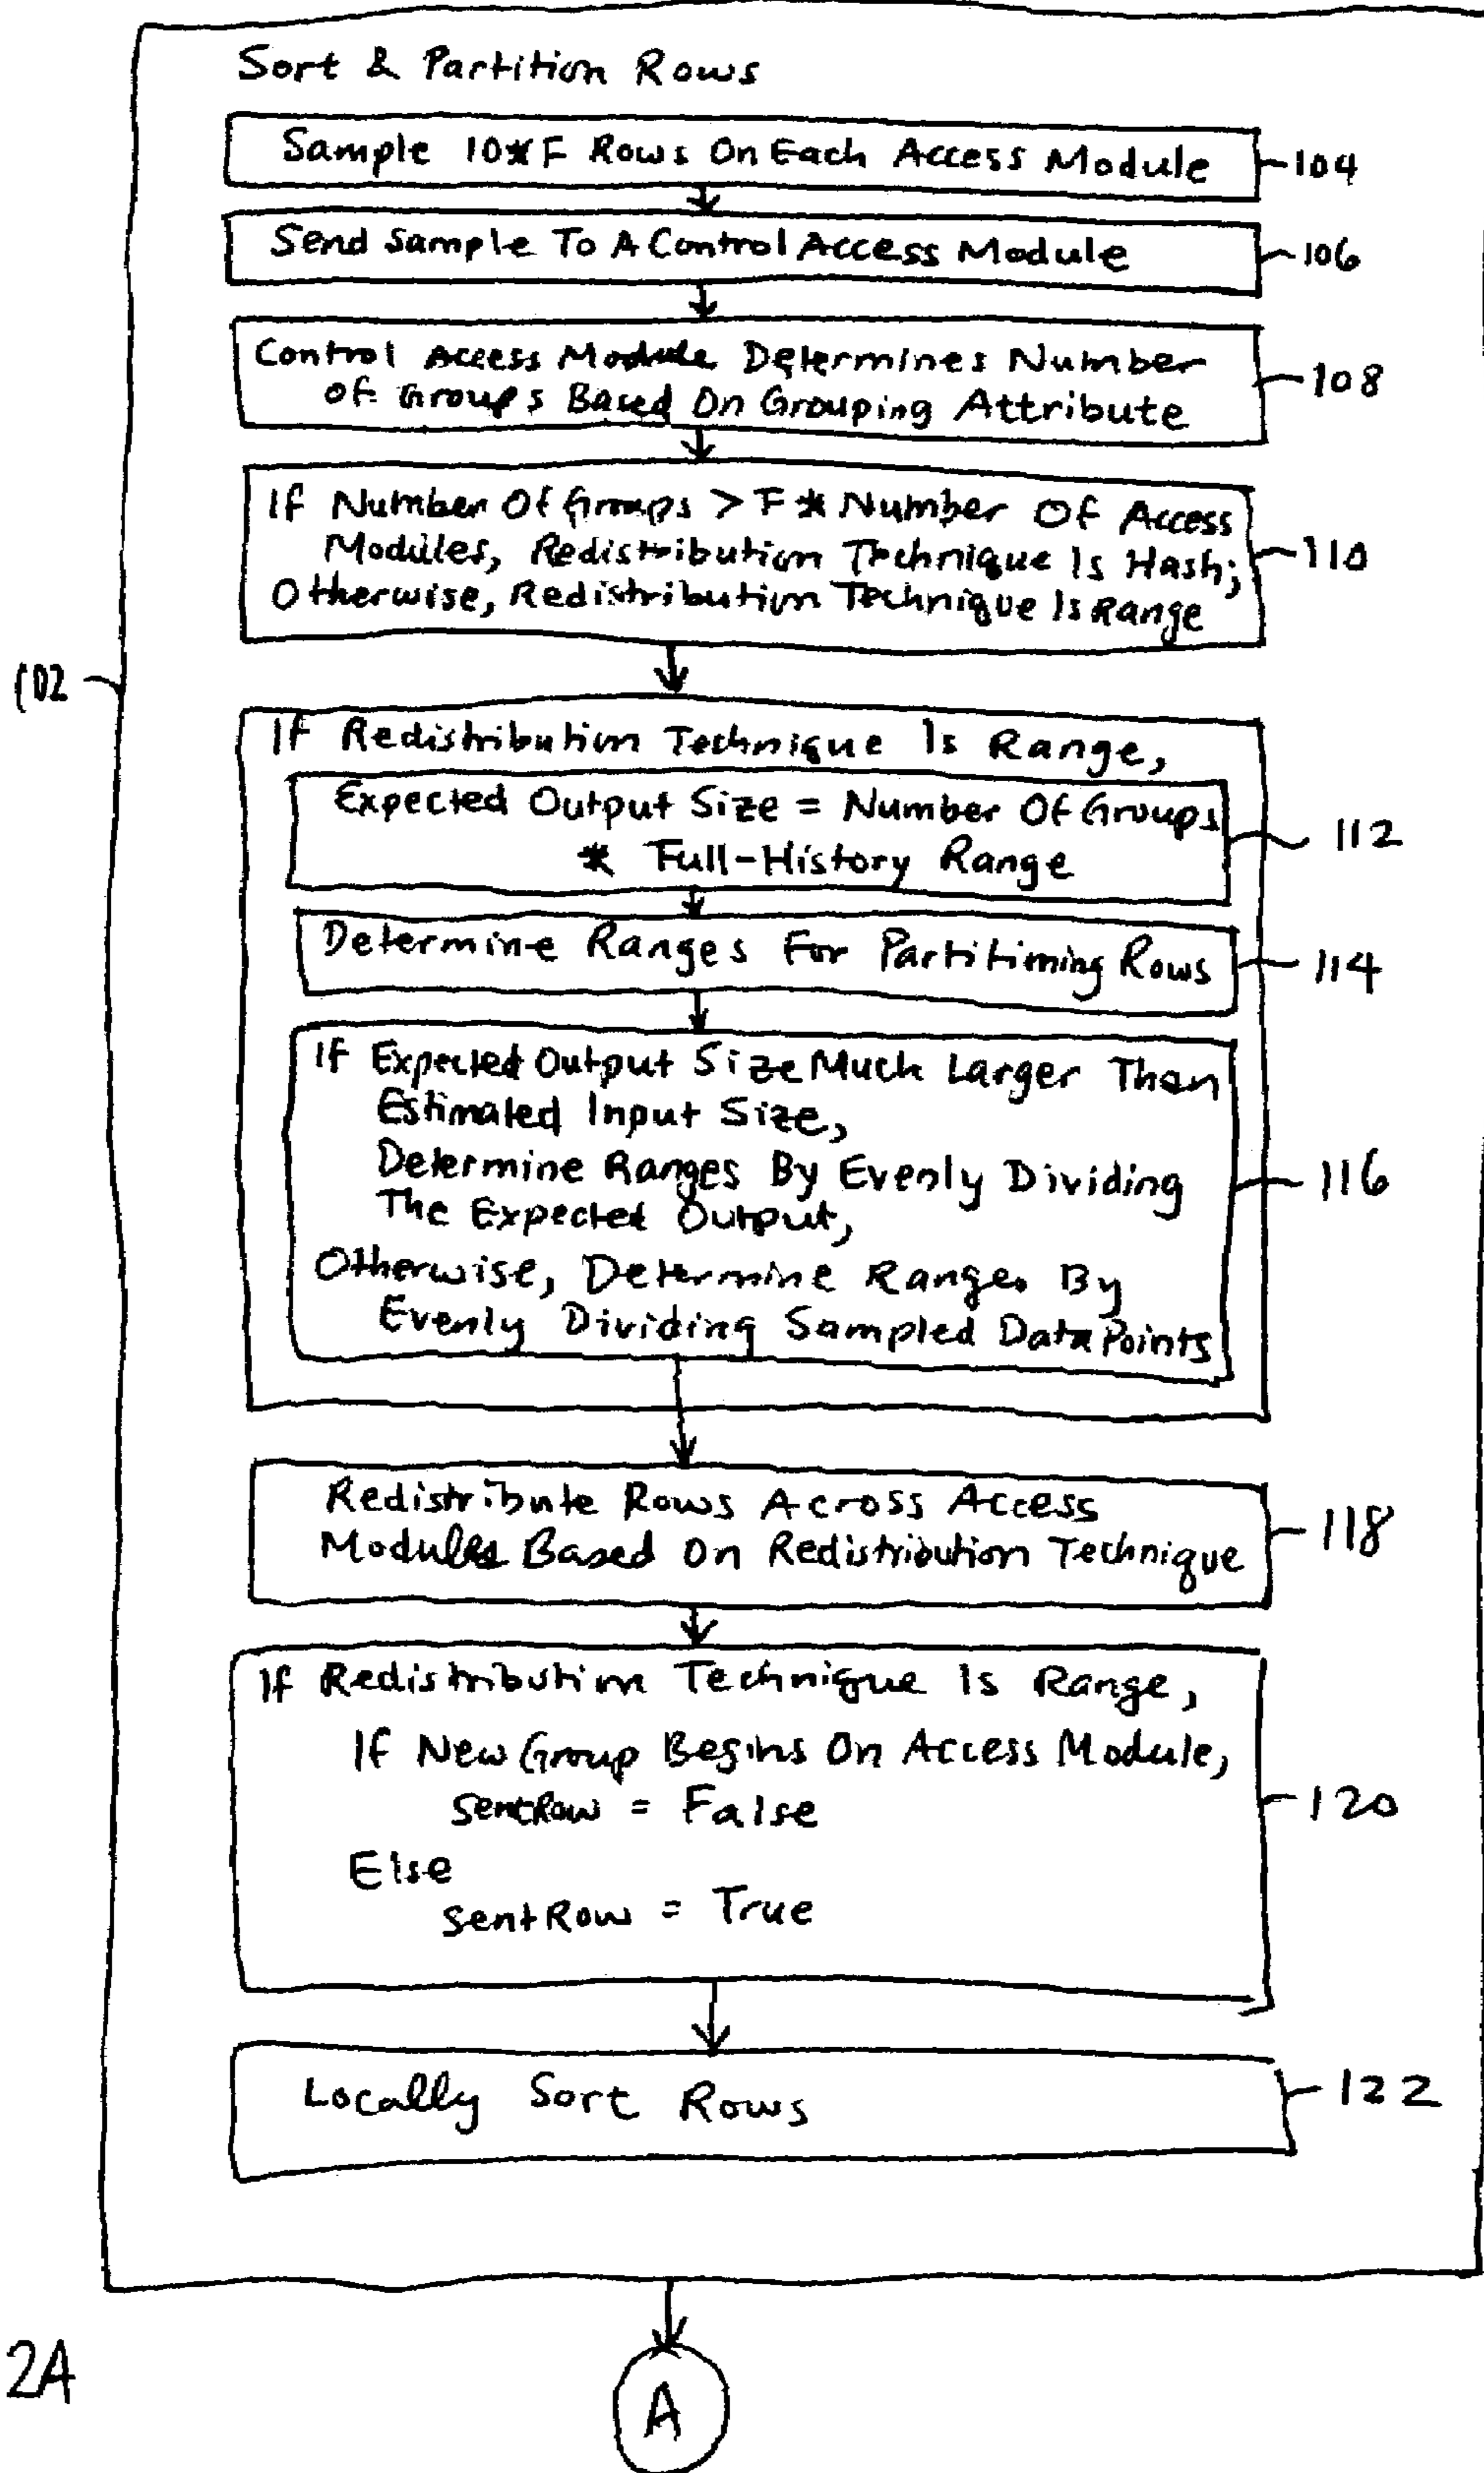 Sort & Partition Rows
Sample 10*F Rows On Each Access Module
104
Send Sample To A Control Access Module
106
Control Access Module Determines Number
of Groups Based On Grouping Attribute
108
If Number Of Groups > F * Number Of Access
Modules, Redistribution Technique Is Hash;
Otherwise, Redistribution Technique Is Range
110
102
If Redistribution Technique Is Range,
Expected Output Size = Number Of Groups
* Full-History Range
112
Determine Ranges For Partitioning Rows
114
If Expected Output Size Much Larger Than
Estimated Input Size,
Determine Ranges By Evenly Dividing
The Expected Output,
Otherwise, Determine Ranges By
Evenly Dividing Sampled Data Points
116
Redistribute Rows Across Access
Modules Based On Redistribution Technique
118
If Redistribution Technique Is Range,
If New Group Begins On Access Module,
sentRow = False
Else
sentRow = True
120
Locally Sort Rows
122
2A
A